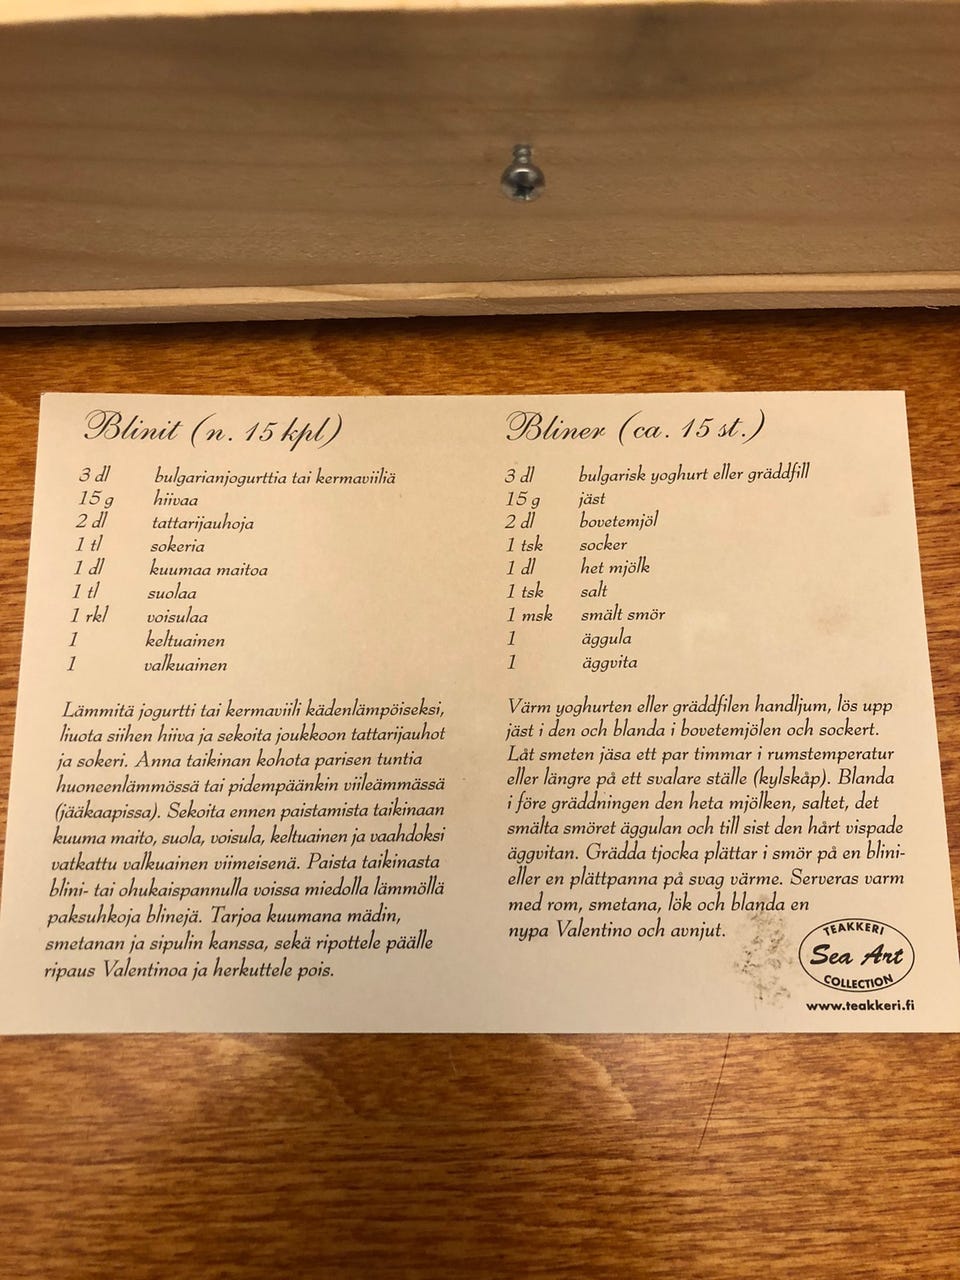 Blinit (n. 15 kpl)
3 dl bulgarianjogurttia tai kermaviiliä
15 g hiivaa
2 dl tattarijauhoja
1 tl sokeria
1 dl kuumaa maitoa
1 tl suolaa
1 rkl voisulaa
1 keltuainen
1 valkuainen
Lämmitä jogurtti tai kermaviili kädenlämpöiseksi,
liuota siihen hiiva ja sekoita joukkoon tattarijauhot
ja sokeri. Anna taikinan kohota parisen tuntia
huoneenlämmössä tai pidempäänkin viileämmässä
(jääkaapissa). Sekoita ennen paistamista taikinaan
kuuma maito, suola, voisula, keltuainen ja vaahdoksi
vatkattu valkuainen viimeisenä. Paista taikinasta
blini- tai ohukaispannulla voissa miedolla lämmöllä
paksuhkoja blinejä. Tarjoa kuumana mädin,
smetanan ja sipulin kanssa, sekä ripottele päälle
ripaus Valentinoa ja herkuttele pois.
Bliner (ca. 15 st.)
3 dl bulgarisk yoghurt eller gräddfill
15 g jäst
2 dl bovetemjöl
1 tsk socker
1 dl het mjölk
1 tsk salt
1 msk smält smör
1 äggula
1 äggvita
Värm yoghurten eller gräddfilen handljum, lös upp
jäst i den och blanda i bovetemjölen och sockert.
Låt smeten jäsa ett par timmar i rumstemperatur
eller längre på ett svalare ställe (kylskåp). Blanda
i före gräddningen den heta mjölken, saltet, det
smälta smöret äggulan och till sist den hårt vispade
äggvitan. Grädda tjocka plättar i smör på en blini-
eller en plättpanna på svag värme. Serveras varm
med rom, smetana, lök och blanda en
nypa Valentino och avnjut.
TEAKKERI
Sea Art
COLLECTION
www.teakkeri.fi